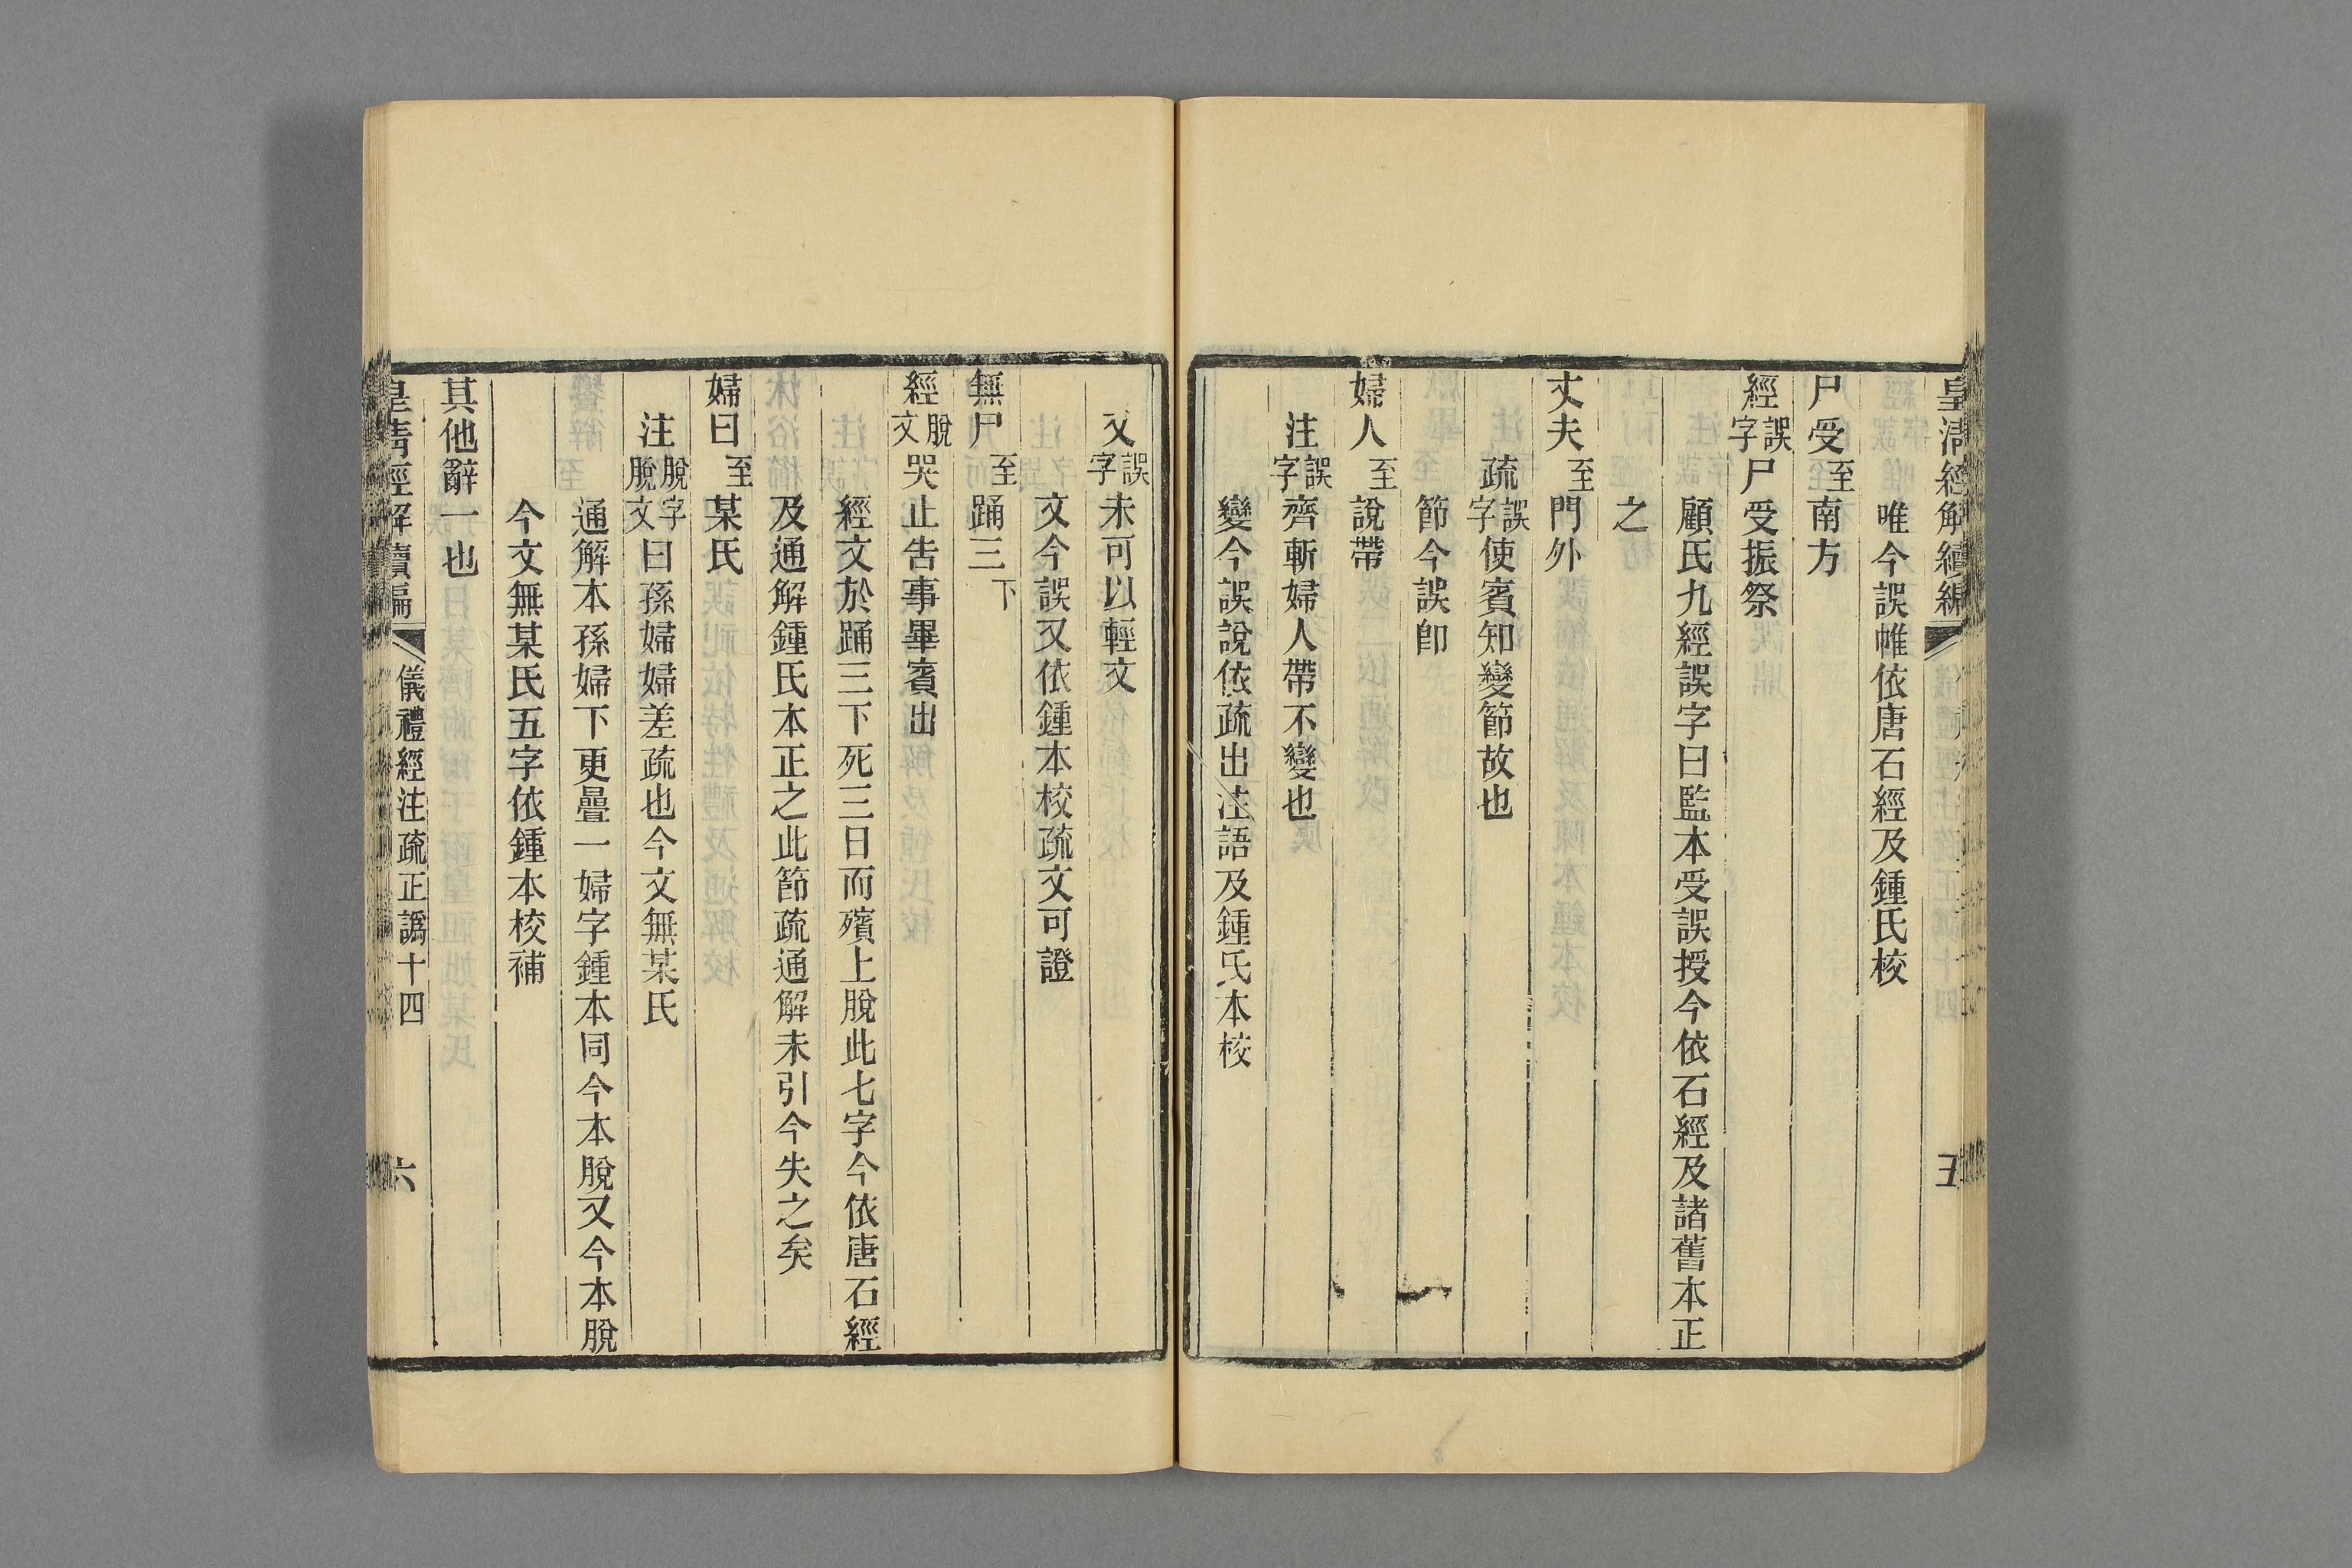 皇清經解續編
五
唯今誤帷依唐石經及鍾氏校
尸受至南方
經誤字尸受振祭
顧氏九經誤字曰監本受誤授今依石經及諸舊本正
之
丈夫至門外
疏誤字使賓知變節故也
節今誤卽
婦人至說帶
注誤字齊斬婦人帶不變也
變今誤說依疏出注語及鍾氏本校
又誤字未可以輕文
文今誤又依鍾本校疏文可證
無尸至踊三下
經脫文哭止告事畢賓出
經文於踊三下死三日而殯上脫此七字今依唐石經
及通解鍾氏本正之此節疏通解未引今失之矣
婦曰至某氏
注脫字脫文曰孫婦婦差疏也今文無某氏
通解本孫婦下更曡一婦字鍾本同今本脫又今本脫
今文無某氏五字依鍾本校補
其他辭一也
皇清經解續編 儀禮經注疏正譌十四 六